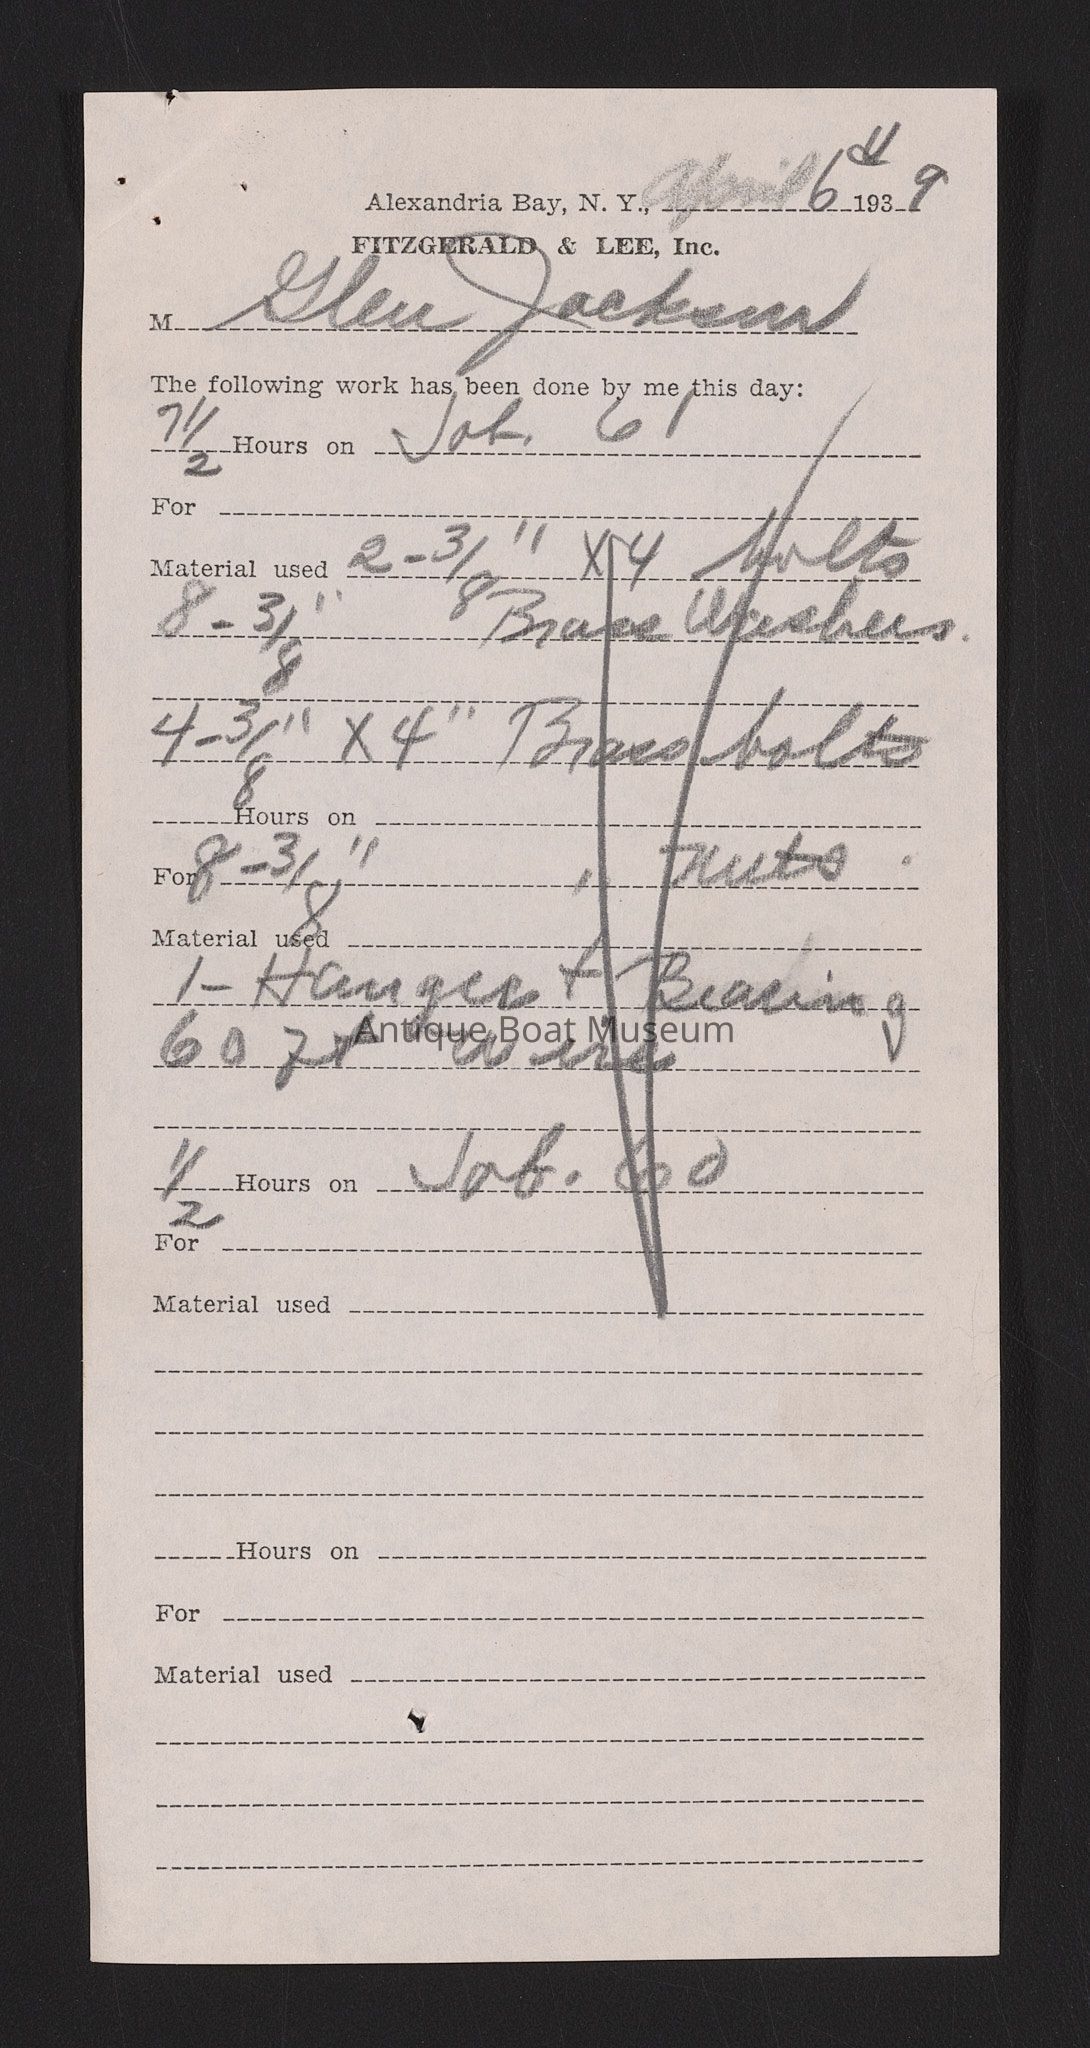 Alexandria Bay, N. Y., April 6th 1939
FITZGERALD & LEE, Inc.
M Glen Jackson
The following work has been done by me this day:
7 1/2 Hours on Job. 61
For
Material used 2 - 3/8" X 4 bolts
8 - 3/8" Brass Washers.
4 - 3/8" X 4" Brass bolts
Hours on
For 8 - 3/8" " nuts
Material used
1 - Hanger + Bearing
60 ft wire
Antique Boat Museum
1/2 Hours on Job. 60
For
Material used
Hours on
For
Material used